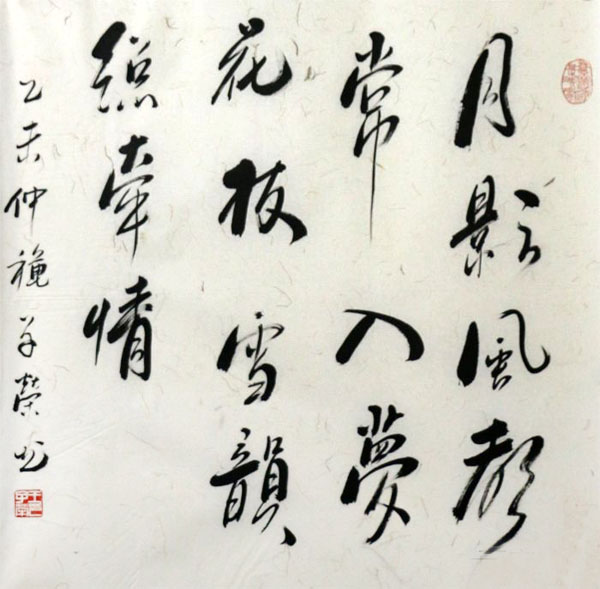 月影風聲
常入夢
花枝雪韻
總牵情
乙未仲穐子榮书